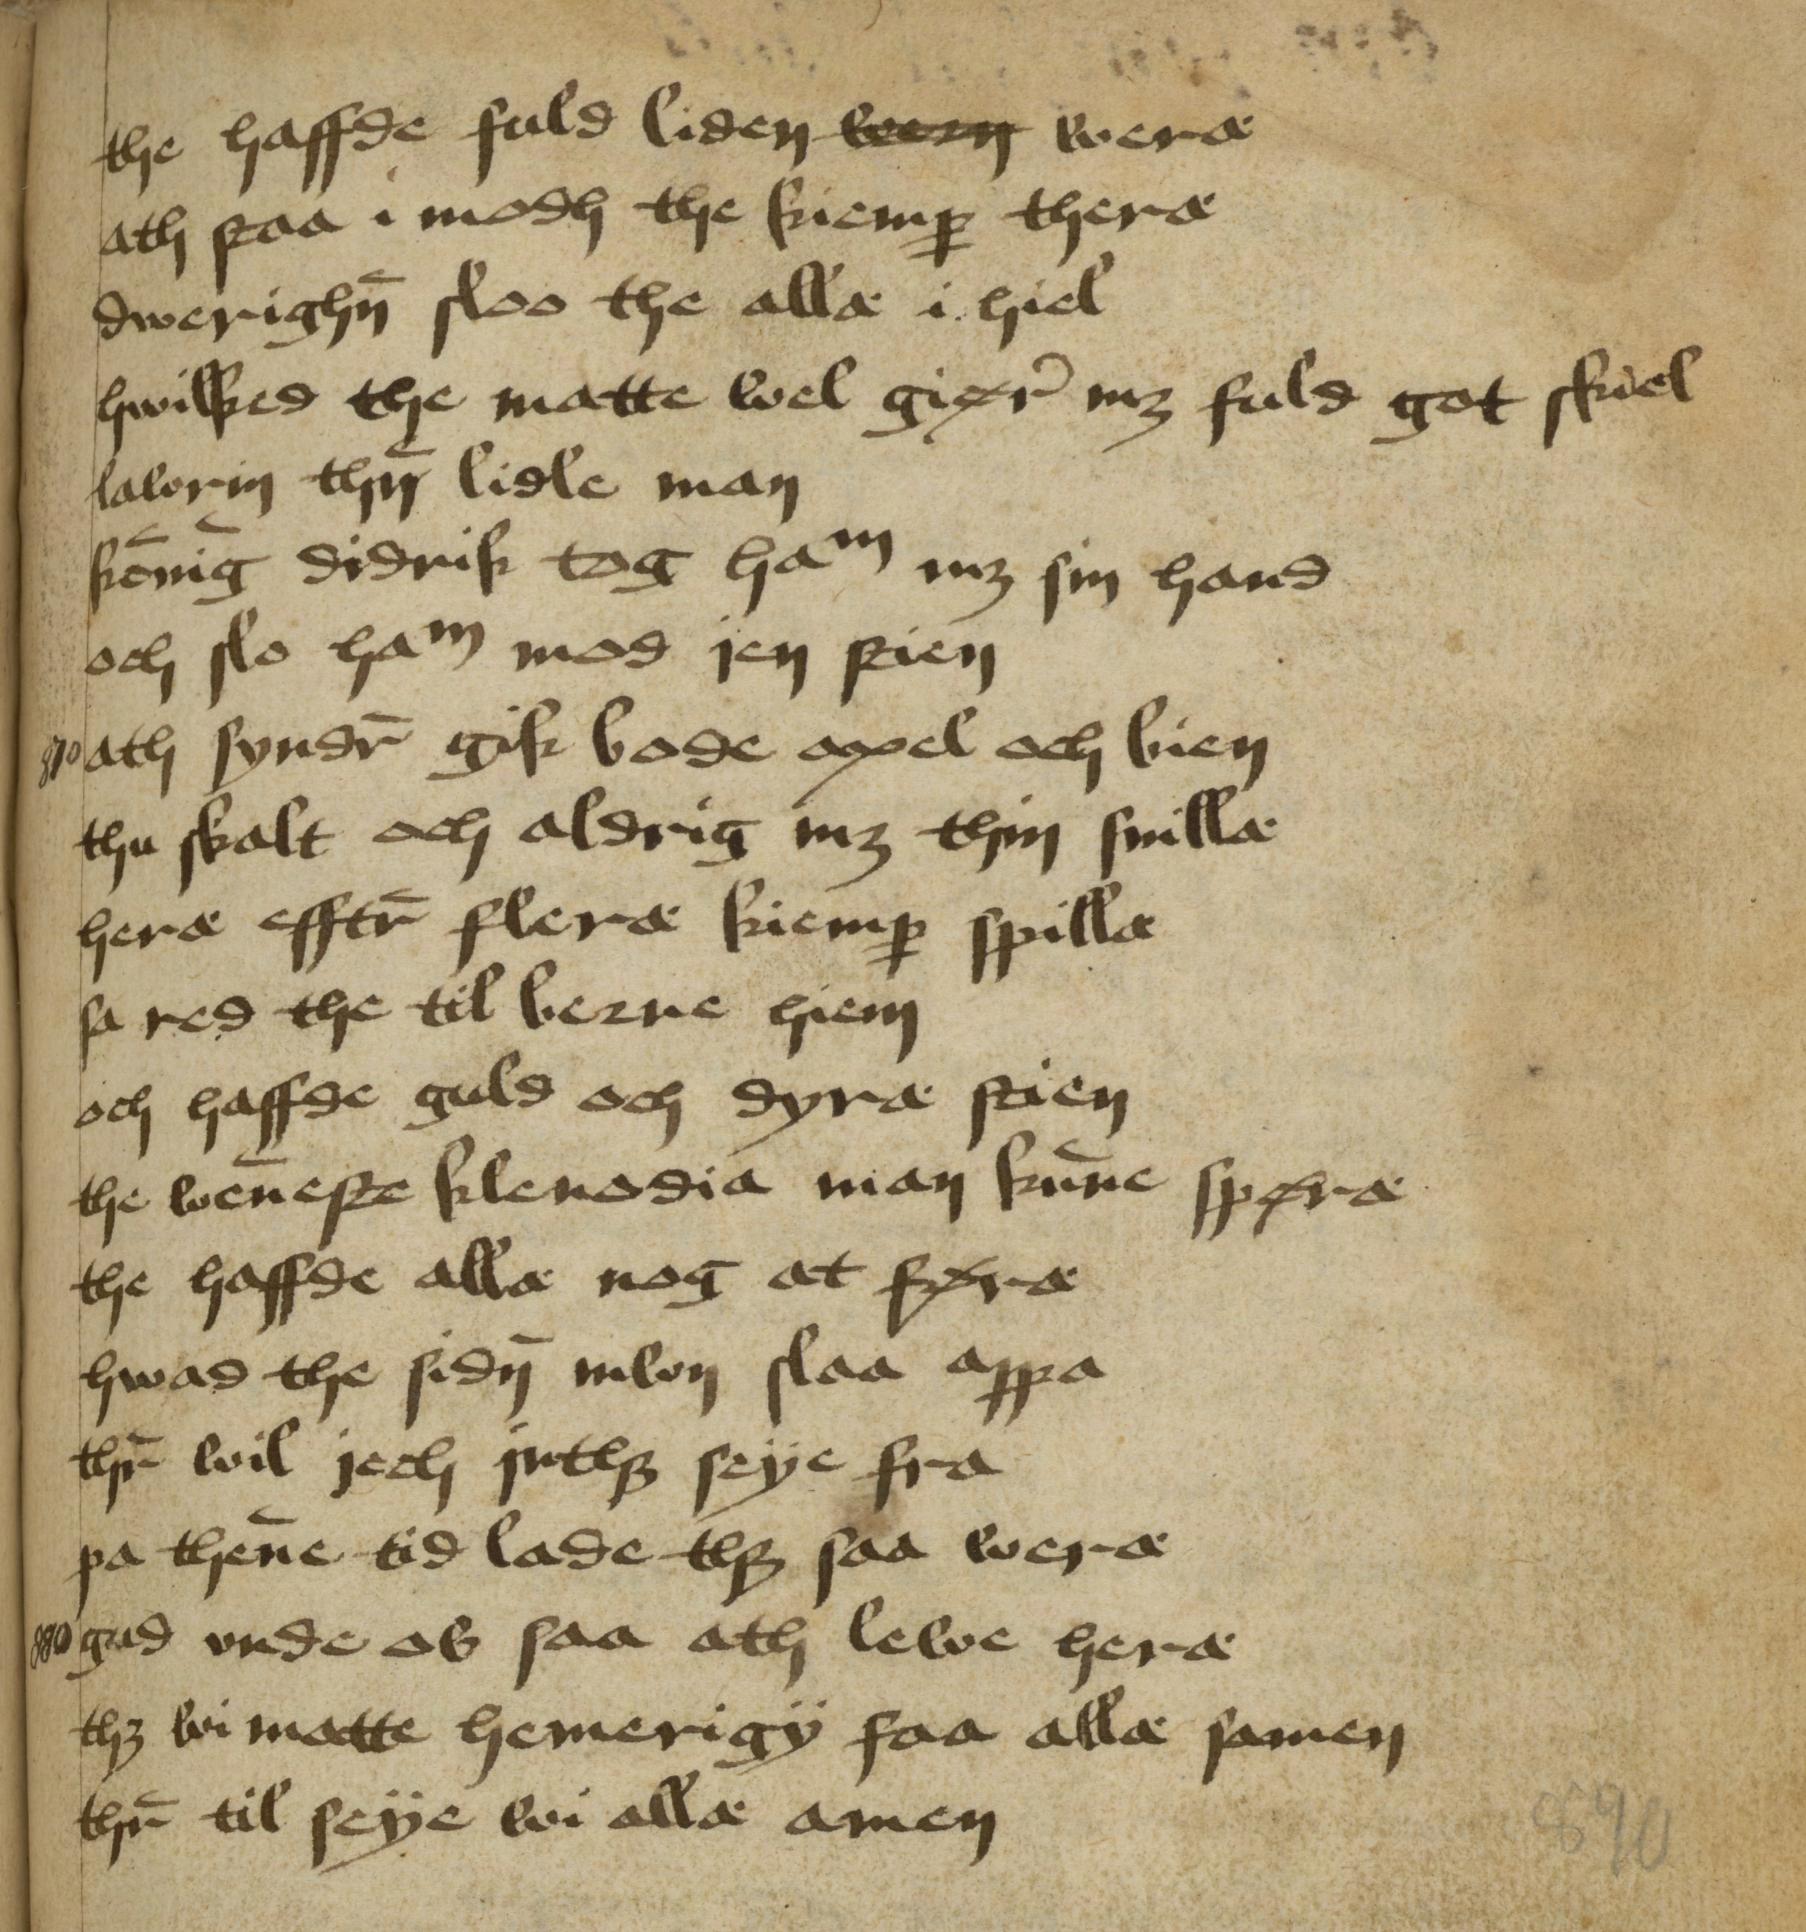 the haffde fuld liden wern weræ
ath staa i modh the kiemꝑ theræ
dwerighn̄ sloo the allæ i hiel
hwilked the matte wel giør̄ mꝫ fuld got skiel
lawrin thn̄ lidle man
kōnīg didrik tog haᵐ mꝫ sin hand
och slo haᵐ mod jen stien
870 ath syndr̄ gik bode axel och bien
thu skalt och aldrig mꝫ thin snillæ
heræ efftr̄ fleræ kiemꝑ spillæ
sa red the til berne hiem
och haffde guld och dyræ stien
the wēneste klenodia man kūne spøræ
the haffde allæ nog at føræ
hwad the sidn̄ mwn slaa appa
thr̄ wil jech inthꝫ seÿe fra
pa thēne tid lade thꝫ saa weræ
880 gud vnde oss saa ath lewe heræ
thꝫ wi matte hemerigÿ faa allæ samen
thr̄ til seÿe wi allæ amen
890